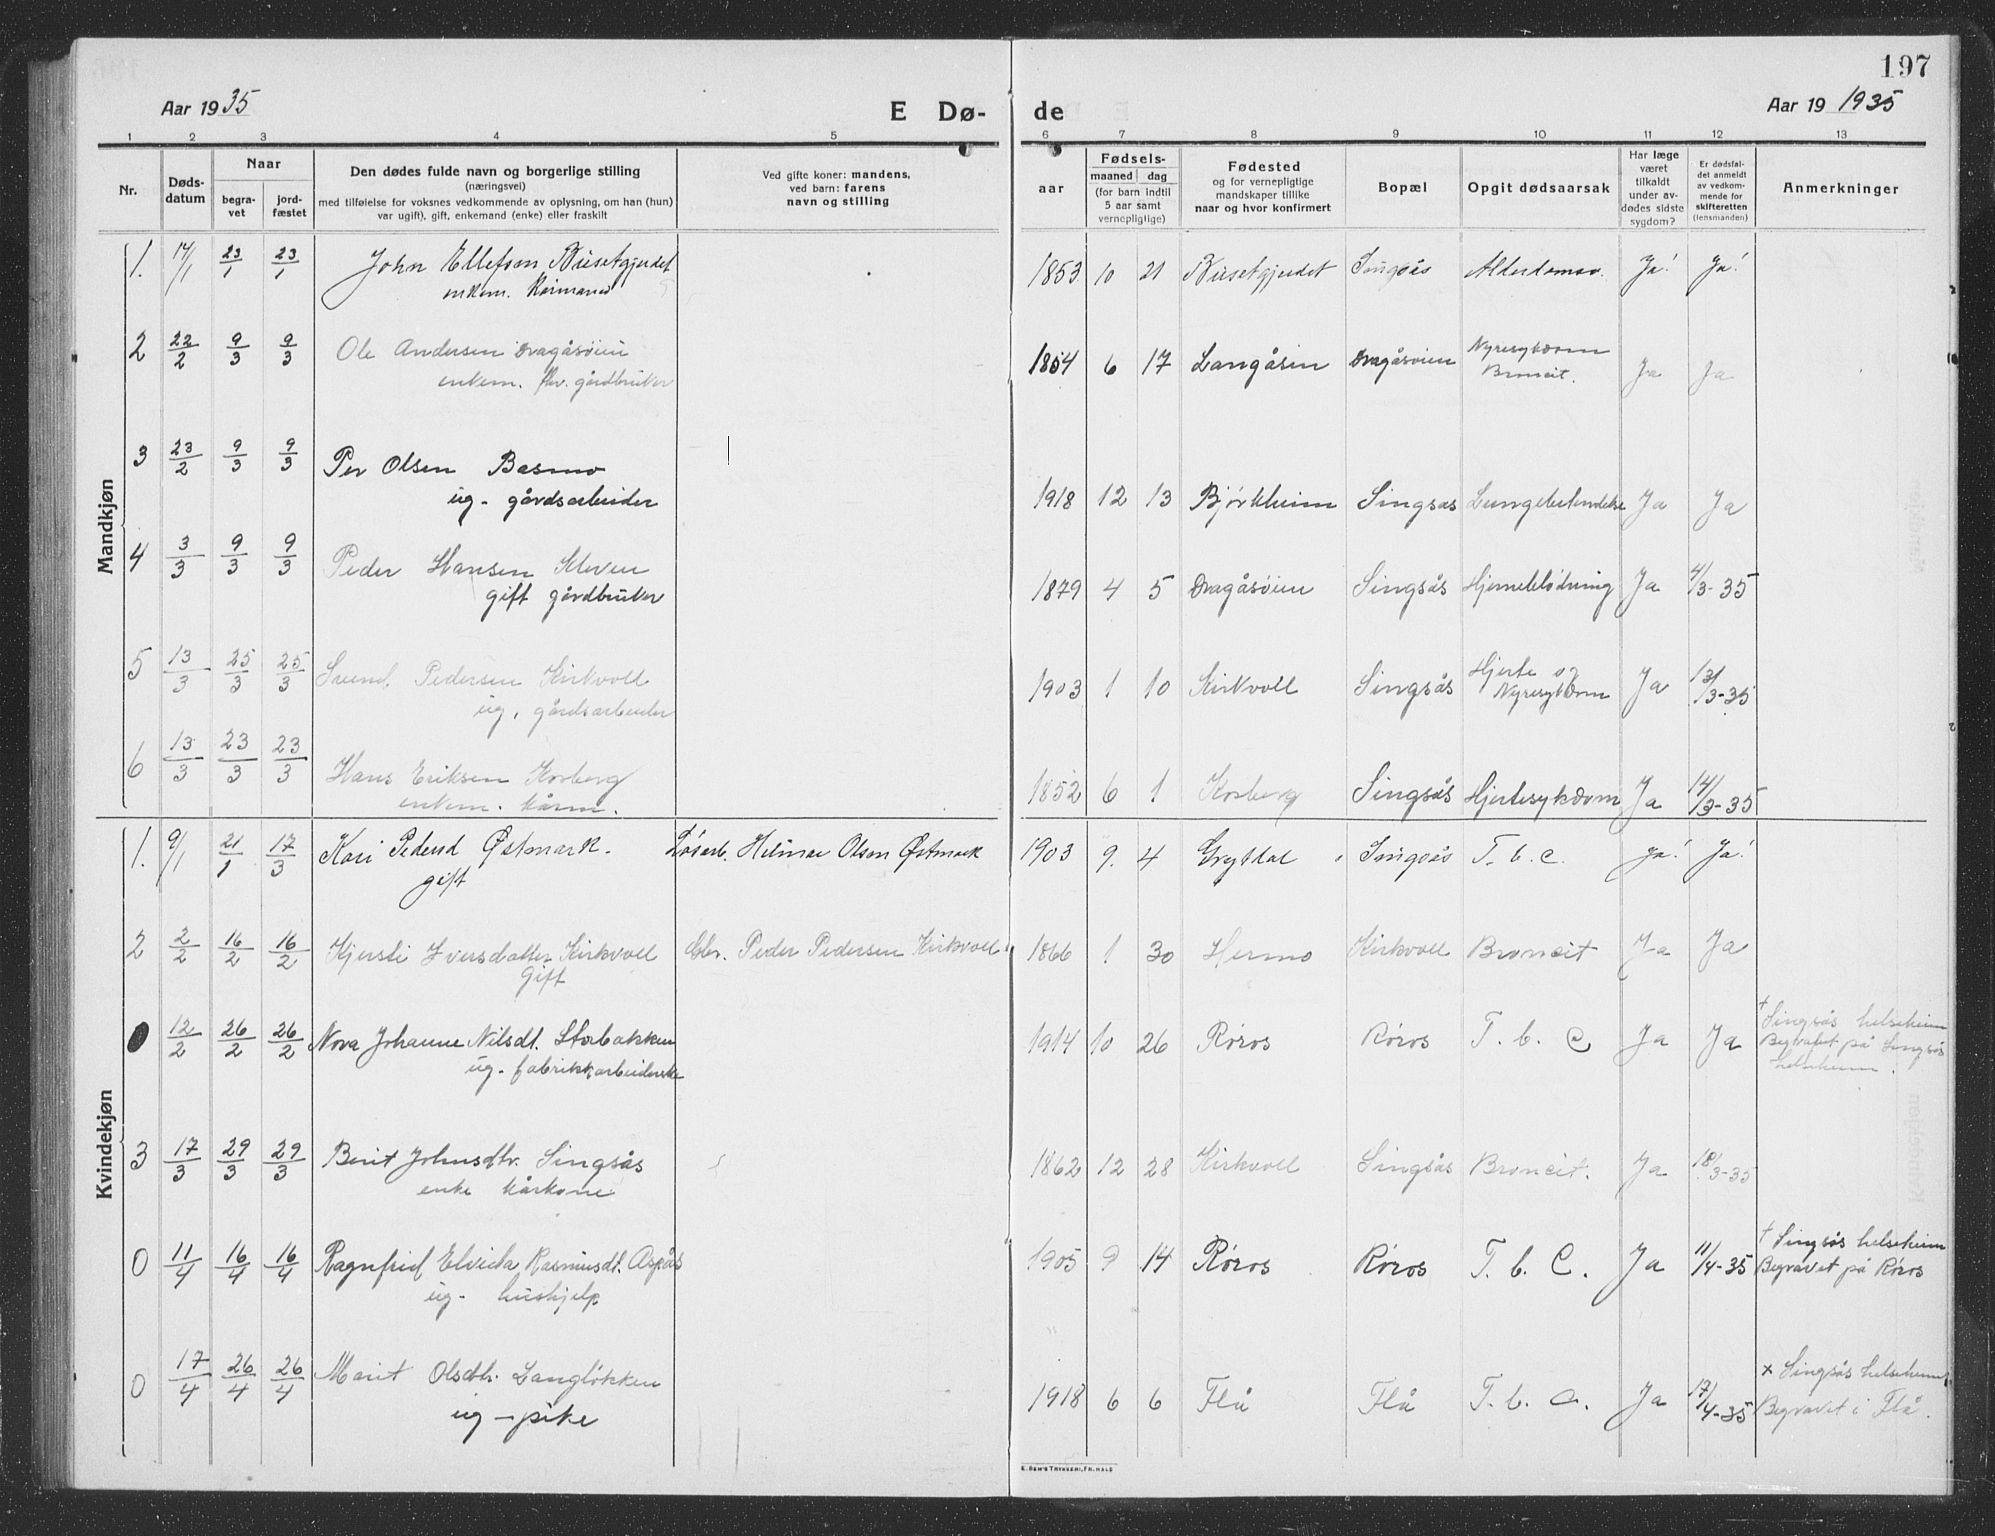 197
Aar 1935
E Dø-
de
Aar 19 1935
1 2 3 4 5 6 7 8 9 10 11 12 13
Nr.
Døds-
datum
Naar
begra-
vet
jord-
fæstet
Den dødes fulde navn og borgerlige stilling
(næringsvei)
med tilføielse for voksnes vedkommende av oplysning, om han (hun)
var ugift), gift, enkemand (enke) eller fraskilt
Ved gifte koner: mandens,
ved barn: farens
navn og stilling
aar
Fødsels-
maaned dag
(for barn indtil
5 aar samt
vernepligtige)
Fødested
og for vernepligtige
mandskaper tillike
naar og hvor konfirmert
Bopæl
Opgit dødsaarsak
Har læge
været
tilkaldt
under av-
dødes sidste
sygdom?
Er dødsfal-
det anmeldt
av vedkom-
mende for
skifteretten
(lensmanden)
Anmerkninger
Mandkjøn
1. 14/1 23/1 23/1 John Ellefsen Busetgjerdet 1853 10 21 Busetgjerdet Singsås Alderdomsv. Ja! Ja!
enkem. Kårmand
2 22/2 9/3 9/3 Ole Andersen Dragåsøien 1854 6 17 Langåsen Dragåsøien Nyresykdom Ja Ja
enkem. fhv. gårdbruker Broncit.
3 23/2 9/3 9/3 Per Olsen Basmo 1918 12 13 Bjørkheim Singsås Lungebetendelse Ja Ja
ug. gårdsarbeider
4 3/3 9/3 9/3 Peder Hansen Kleven 1879 4 5 Dragåsøien Singsås Hjerneblødning Ja 4/3-35
gift gårdbruker
5 13/3 25/3 25/3 Pedersen Kirkvold 1903 1 10 Kirkvoll Singsås Hjerte og Ja 13/3-35
ug. gårdsarbeider Nyresykdom
6 13/3 23/3 23/3 Hans Eriksen Korberg 1852 6 1 Korberg Singsås Hjertesykdom Ja 14/3-35
enkem. kårm.
Kvindekjøn
1. 9/1 21/1 17/3 Kari Pedersd Østmark. Løsarb. Hilmar Olsen Østmark 1903 9. 4 Grytdal Singsås T.b.c. Ja! Ja!
gift
2 2/2 16/2 16/2 Kjersti Iversdatter Kirkvoll Gbr. Peder Pedersen Kirkvoll 1866 1 30 Hermo Kirkvoll Broncit Ja Ja
Gift
12/2 26/2 26/2 Nora Johanne Nilsdt. Storbakken 1914 10 26 Røros Røros T.b.c Ja Ja † Singsås helseheim
ug. fabrikkarbeiderske Begravet på Singsås
helseheim.
3 17/3 29/3 29/3 Berit Johnsdtr. Singsås 1862 12 28 Kirkvoll Singsås Broncit. Ja 18/3-35
enke kårkone
0 11/4 16/4 16/4 Ragnfrid Elvida Rasmusdt. Aspås 1905 9 14 Røros Røros T.b.C. Ja 11/4-35 † Singsås helseheim
ug. hushjelp Begravet på Røros
0 17/4 26/4 26/4 Marit Olsdtr. Langløkken 1918 6 6 Flå Flå T.b.c. Ja 17/4-35 × Singsås helseheim
ug - pike Begravet i Flå.
E. SEM'S TRYKKERI, FR.HALD